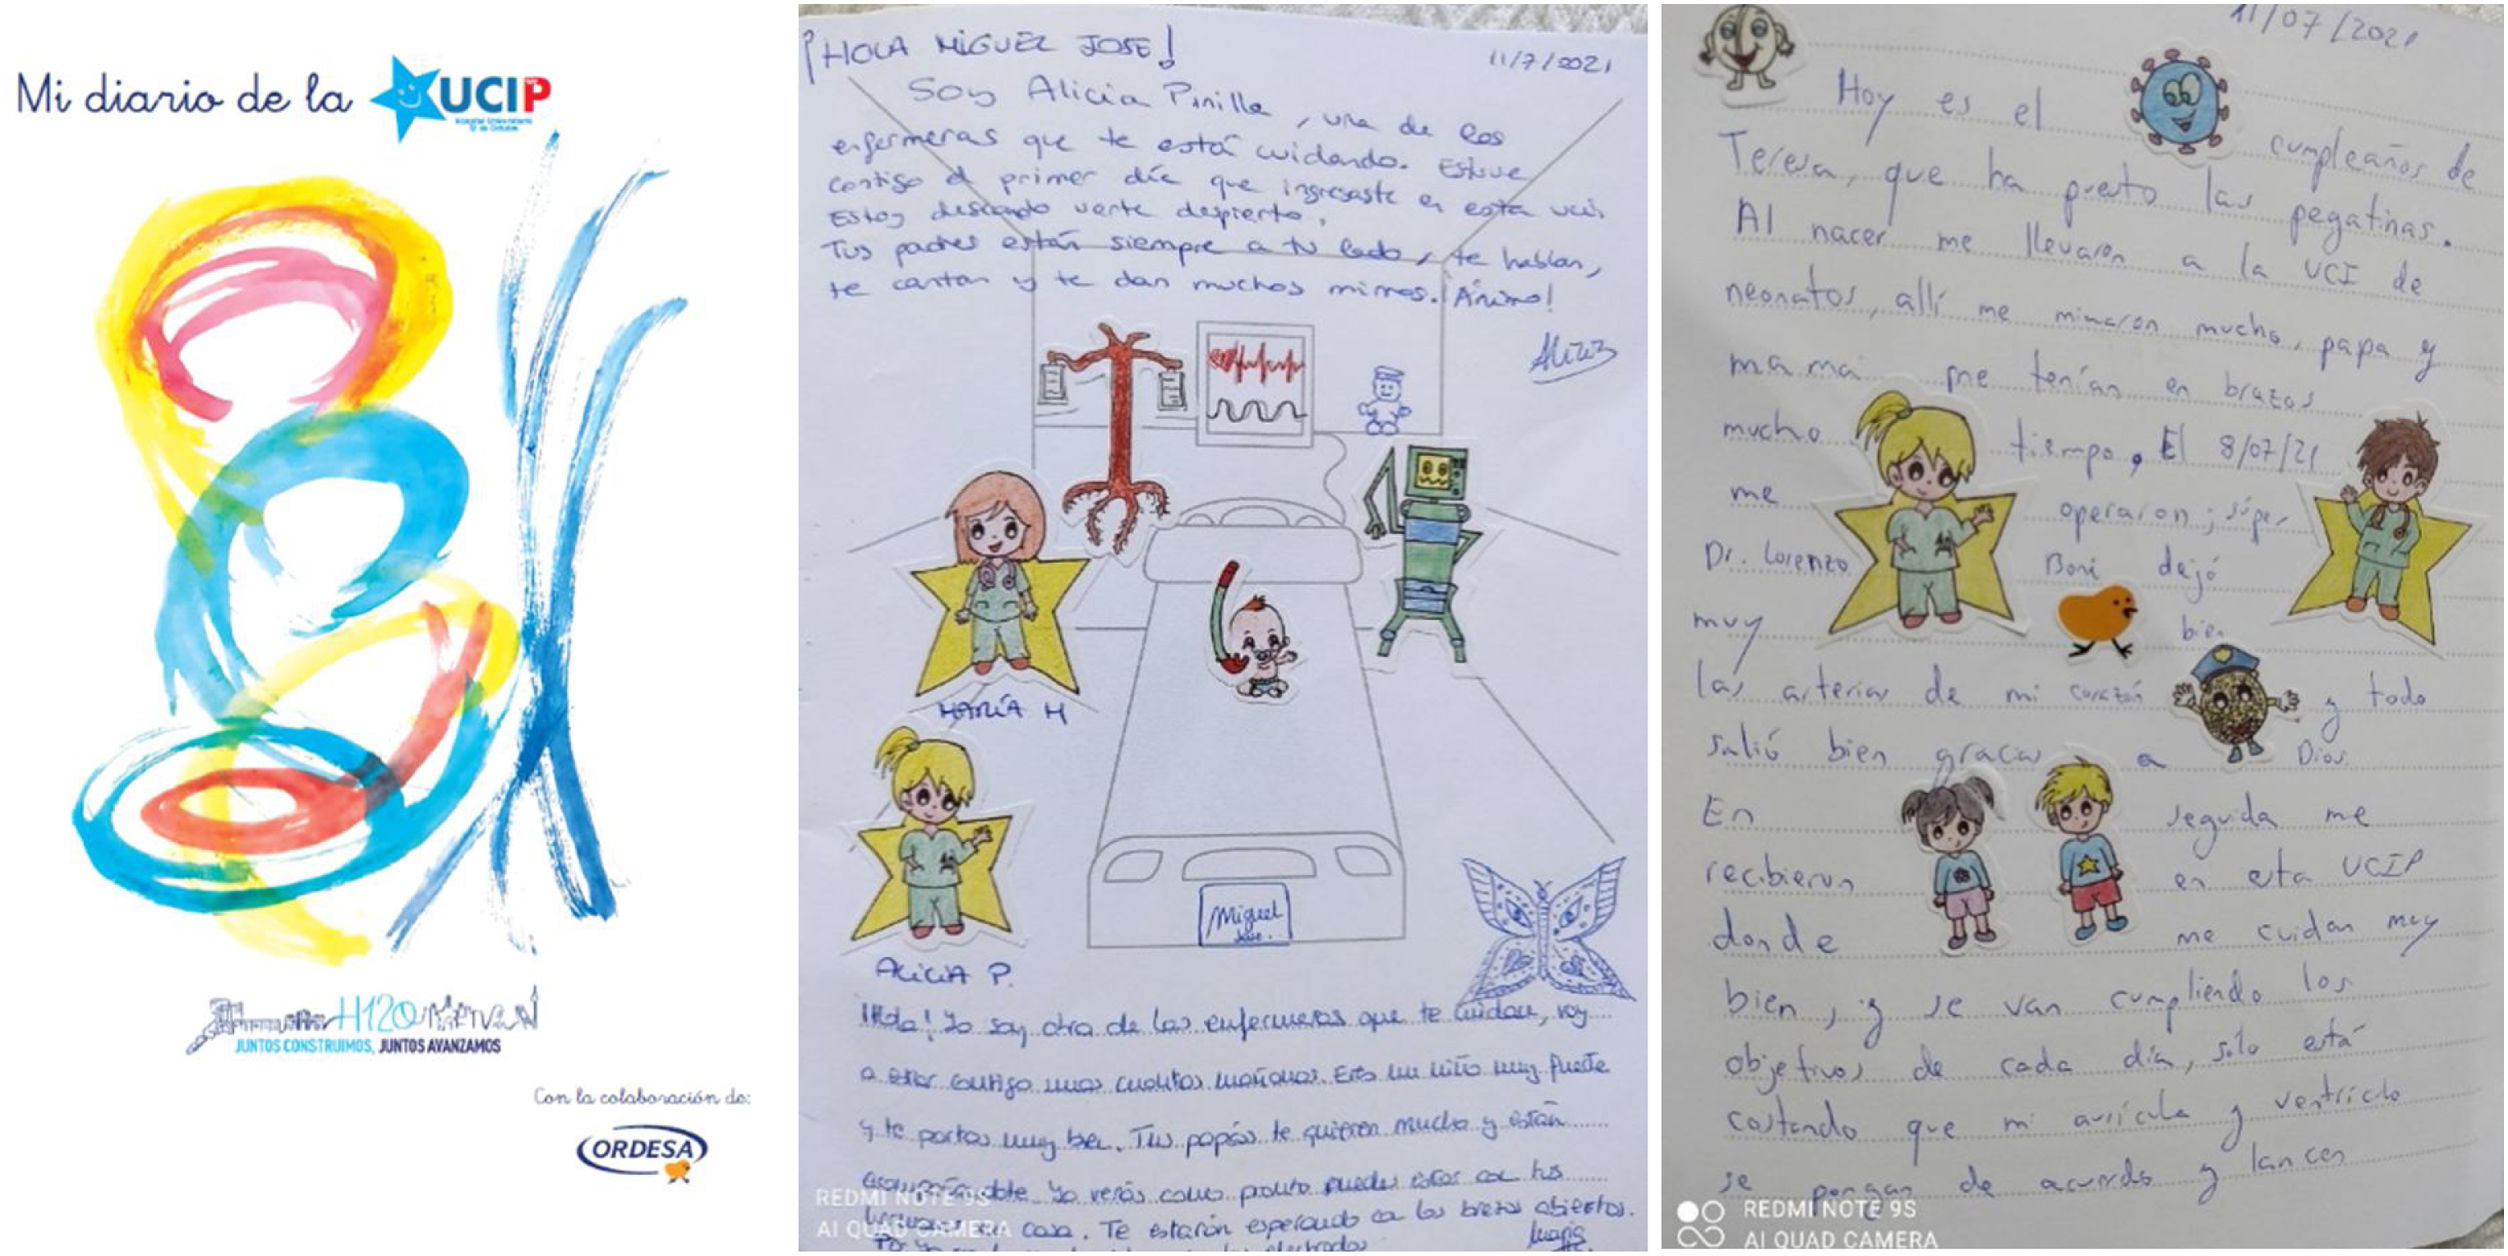 Mi diario de la UCIP
Hospital Universitario
12 de Octubre
H12O
JUNTOS CONSTRUIMOS, JUNTOS AVANZAMOS
Con la colaboración de:
ORDESA
¡HOLA MIGUEL JOSE!
11/7/2021
Soy Alicia Pinilla, una de las
enfermeras que te está cuidando. Estuve
contigo el primer día que ingresaste en esta uci.
Estoy deseando verte despierto.
Tus padres están siempre a tu lado, te hablan,
te cantan y te dan muchos mimos. ¡Ánimo!
MARÍA H
ALICIA P.
Miguel
Jose.
¡Hola! Yo soy otra de las enfermeras que te cuidan, voy
a estar contigo unas cuantas mañanas. Eres un niño muy fuerte
y te portas muy bien. Tus papás te quieren mucho y están
acompañándote. Ya verás como pronto puedes estar con tus
hermanos en casa. Te estarán esperando con los brazos abiertos.
María
electrodos
REDMI NOTE 9S
AI QUAD CAMERA
11/07/2021
Hoy es el cumpleaños de
Teresa, que ha puesto las pegatinas.
Al nacer me llevaron a la UCI de
neonatos, allí me mimaron mucho, papa y
mama me tenían en brazos
mucho tiempo, El 8/07/21
me operaron; súper
Dr. Lorenzo Boni dejó
muy bien
las arterias de mi corazón y todo
salió bien gracias a Dios
En seguida me
recibieron en esta UCIP
donde me cuidan muy
bien, y se van cumpliendo los
objetivos de cada día, solo está
costando que mi aurícula y ventrículo
se pongan de acuerdo y lancen
REDMI NOTE 9S
AI QUAD CAMERA